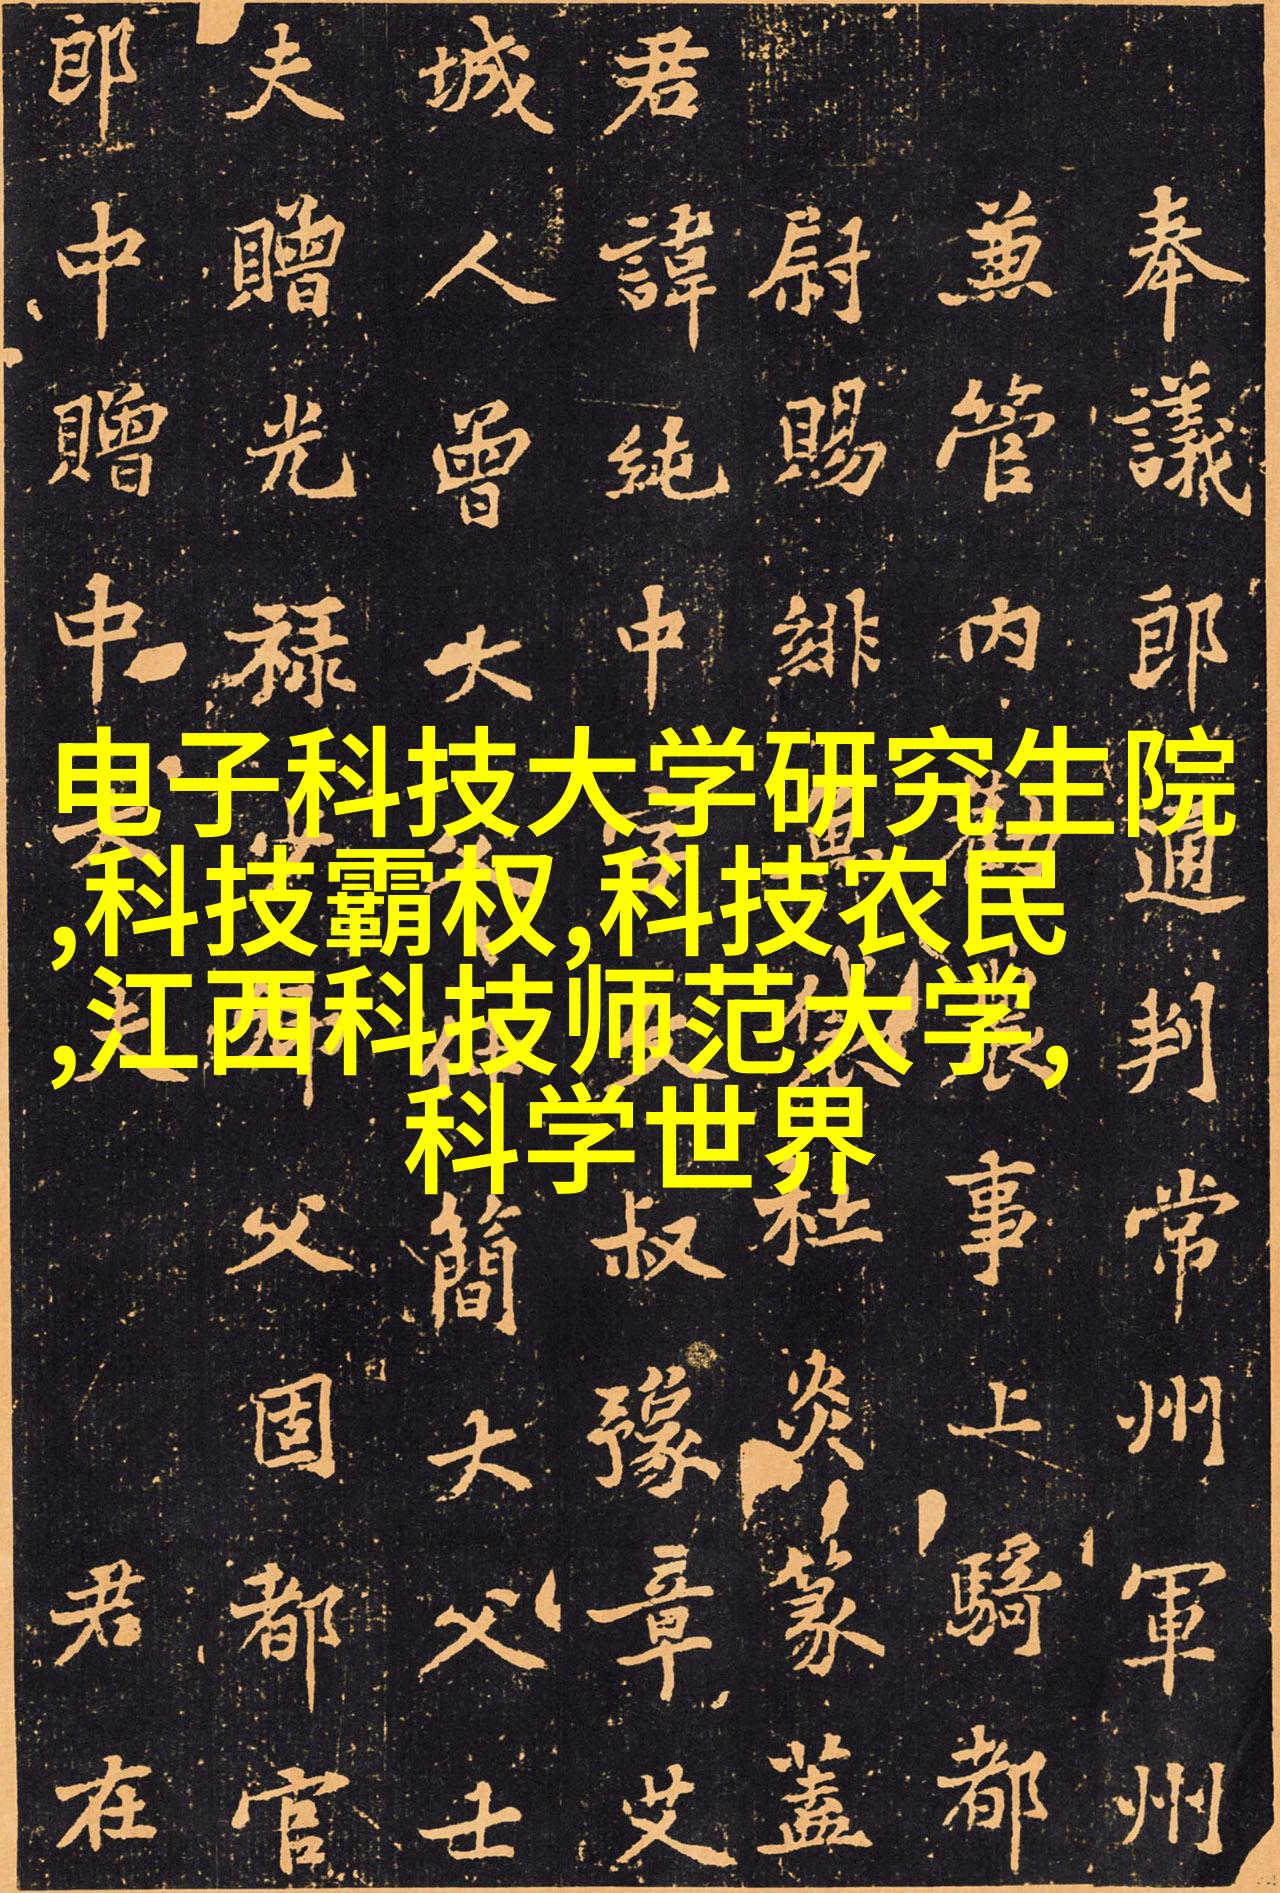 电子科技大学研究生院
,科技霸权,科技农民
,江西科技师范大学,
科学世界
奉議郎通判常州軍州
兼管内農事上騎都
尉賜緋魚袋杜炎篆蓋
君諱純中字文叔豫章艾
城人曾大簡大父士
夫贈光禄父固都官
郎中贈中大夫君在